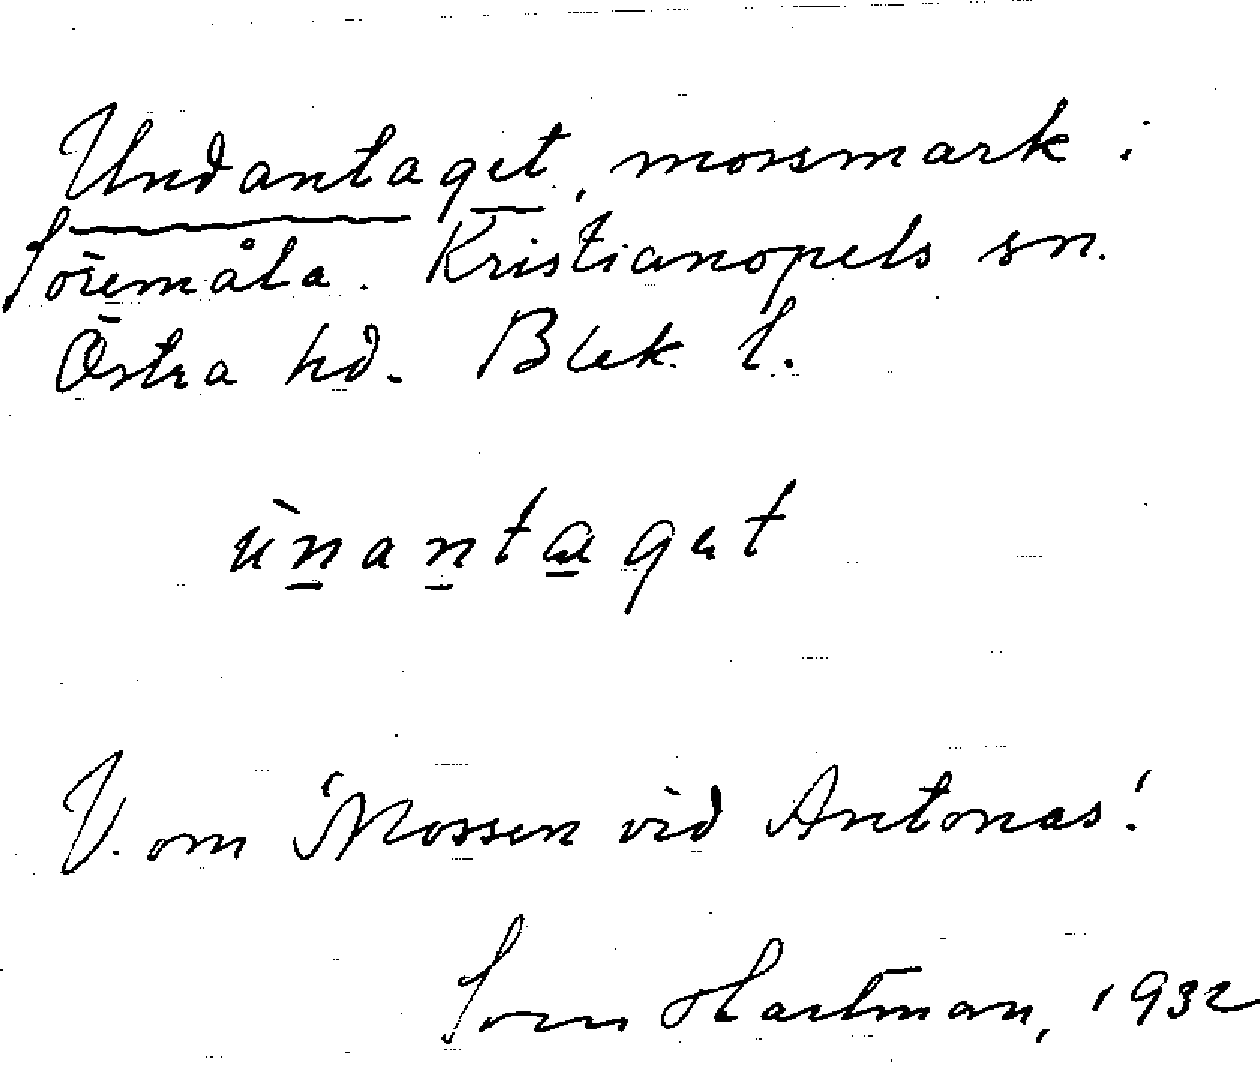 Undantaget, mossmark i
Söremåla. Kristianopels sn.
Östra hd. Blek. l.
ùnantaget
V. om 'Mossen vid Antonas'.
Sven Hartman, 1932